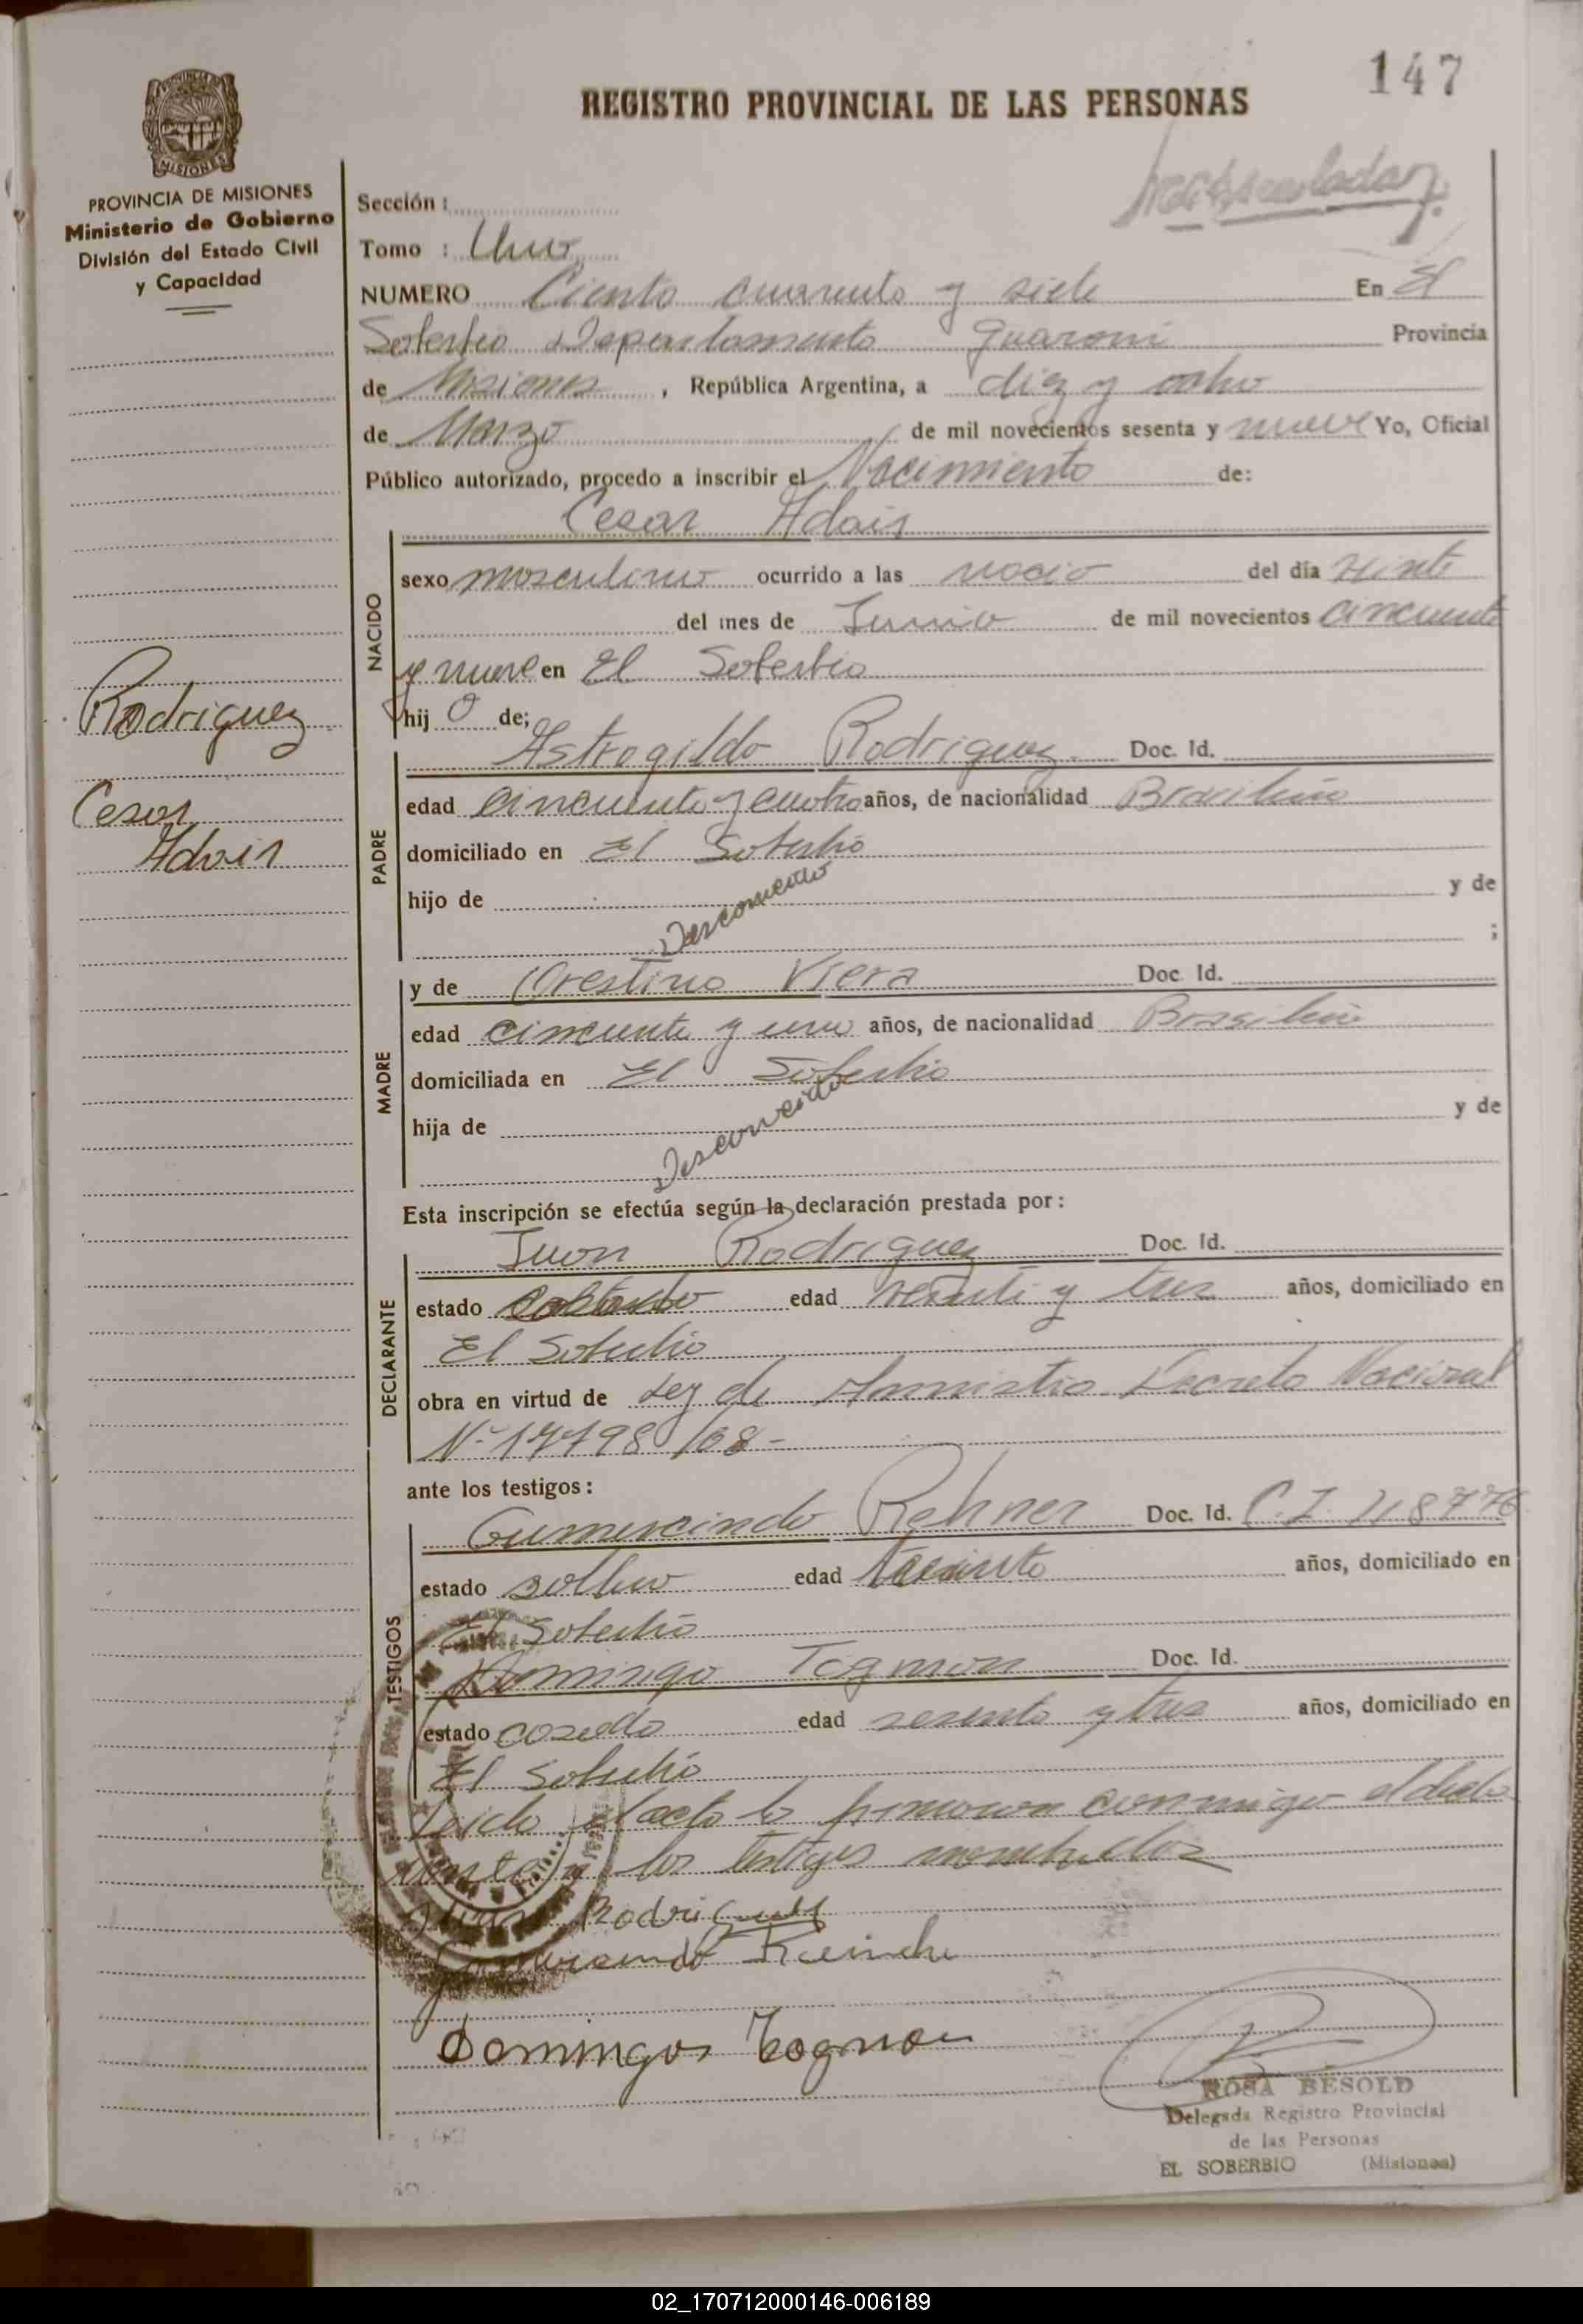 147
REGISTRO PROVINCIAL DE LAS PERSONAS
PROVINCIA DE MISIONES
MISIONES
PROVINCIA DE MISIONES
Ministerio de Gobierno
División del Estado Civil
y Capacidad
Sección :
Tomo : Uno
NUMERO Ciento cuarenta y siete En El
Soberbio Departamento Guarani Provincia
de Misiones , República Argentina, a diez y ocho
de Marzo de mil novecientos sesenta y nueve Yo, Oficial
Público autorizado, procedo a inscribir el Nacimiento de:
Cesar Adair
NACIDO
sexo masculino ocurrido a las nacio del día
del mes de Junio de mil novecientos cincuenta
y nueve en El Soberbio
hij o de;
Rodriguez
Cesar
Adair
PADRE
Astrogildo Rodriguez Doc. Id.
edad cincuenta y cuatro años, de nacionalidad Brasileña
domiciliado en El Soberbio
hijo de y de
Desconocido
;
MADRE
y de Orestina Viera Doc. Id.
edad cincuenta y uno años, de nacionalidad Brasileña
domiciliada en El Soberbio
hija de y de
Desconocido
Esta inscripción se efectúa según la declaración prestada por :
DECLARANTE
Juan Rodriguez Doc. Id.
estado edad veinti y tres años, domiciliado en
El Soberbio
obra en virtud de Ley de Amnistia Decreto Nacional
Nº
ante los testigos :
TESTIGOS
Gumercindo Rehner Doc. Id. C.I.
estado soltero edad años, domiciliado en
El Soberbio
Domingo Tognon Doc. Id.
estado casado edad sesenta y tres años, domiciliado en
El Soberbio
Leido el acta lo firmaron conmigo el decla
rante y los testigos
Juan Rodriguez
Gumercindo
Domingos Tognon
ROSA BESOLD
Delegada Registro Provincial
de las Personas
EL SOBERBIO (Misiones)
02_170712000146-006189